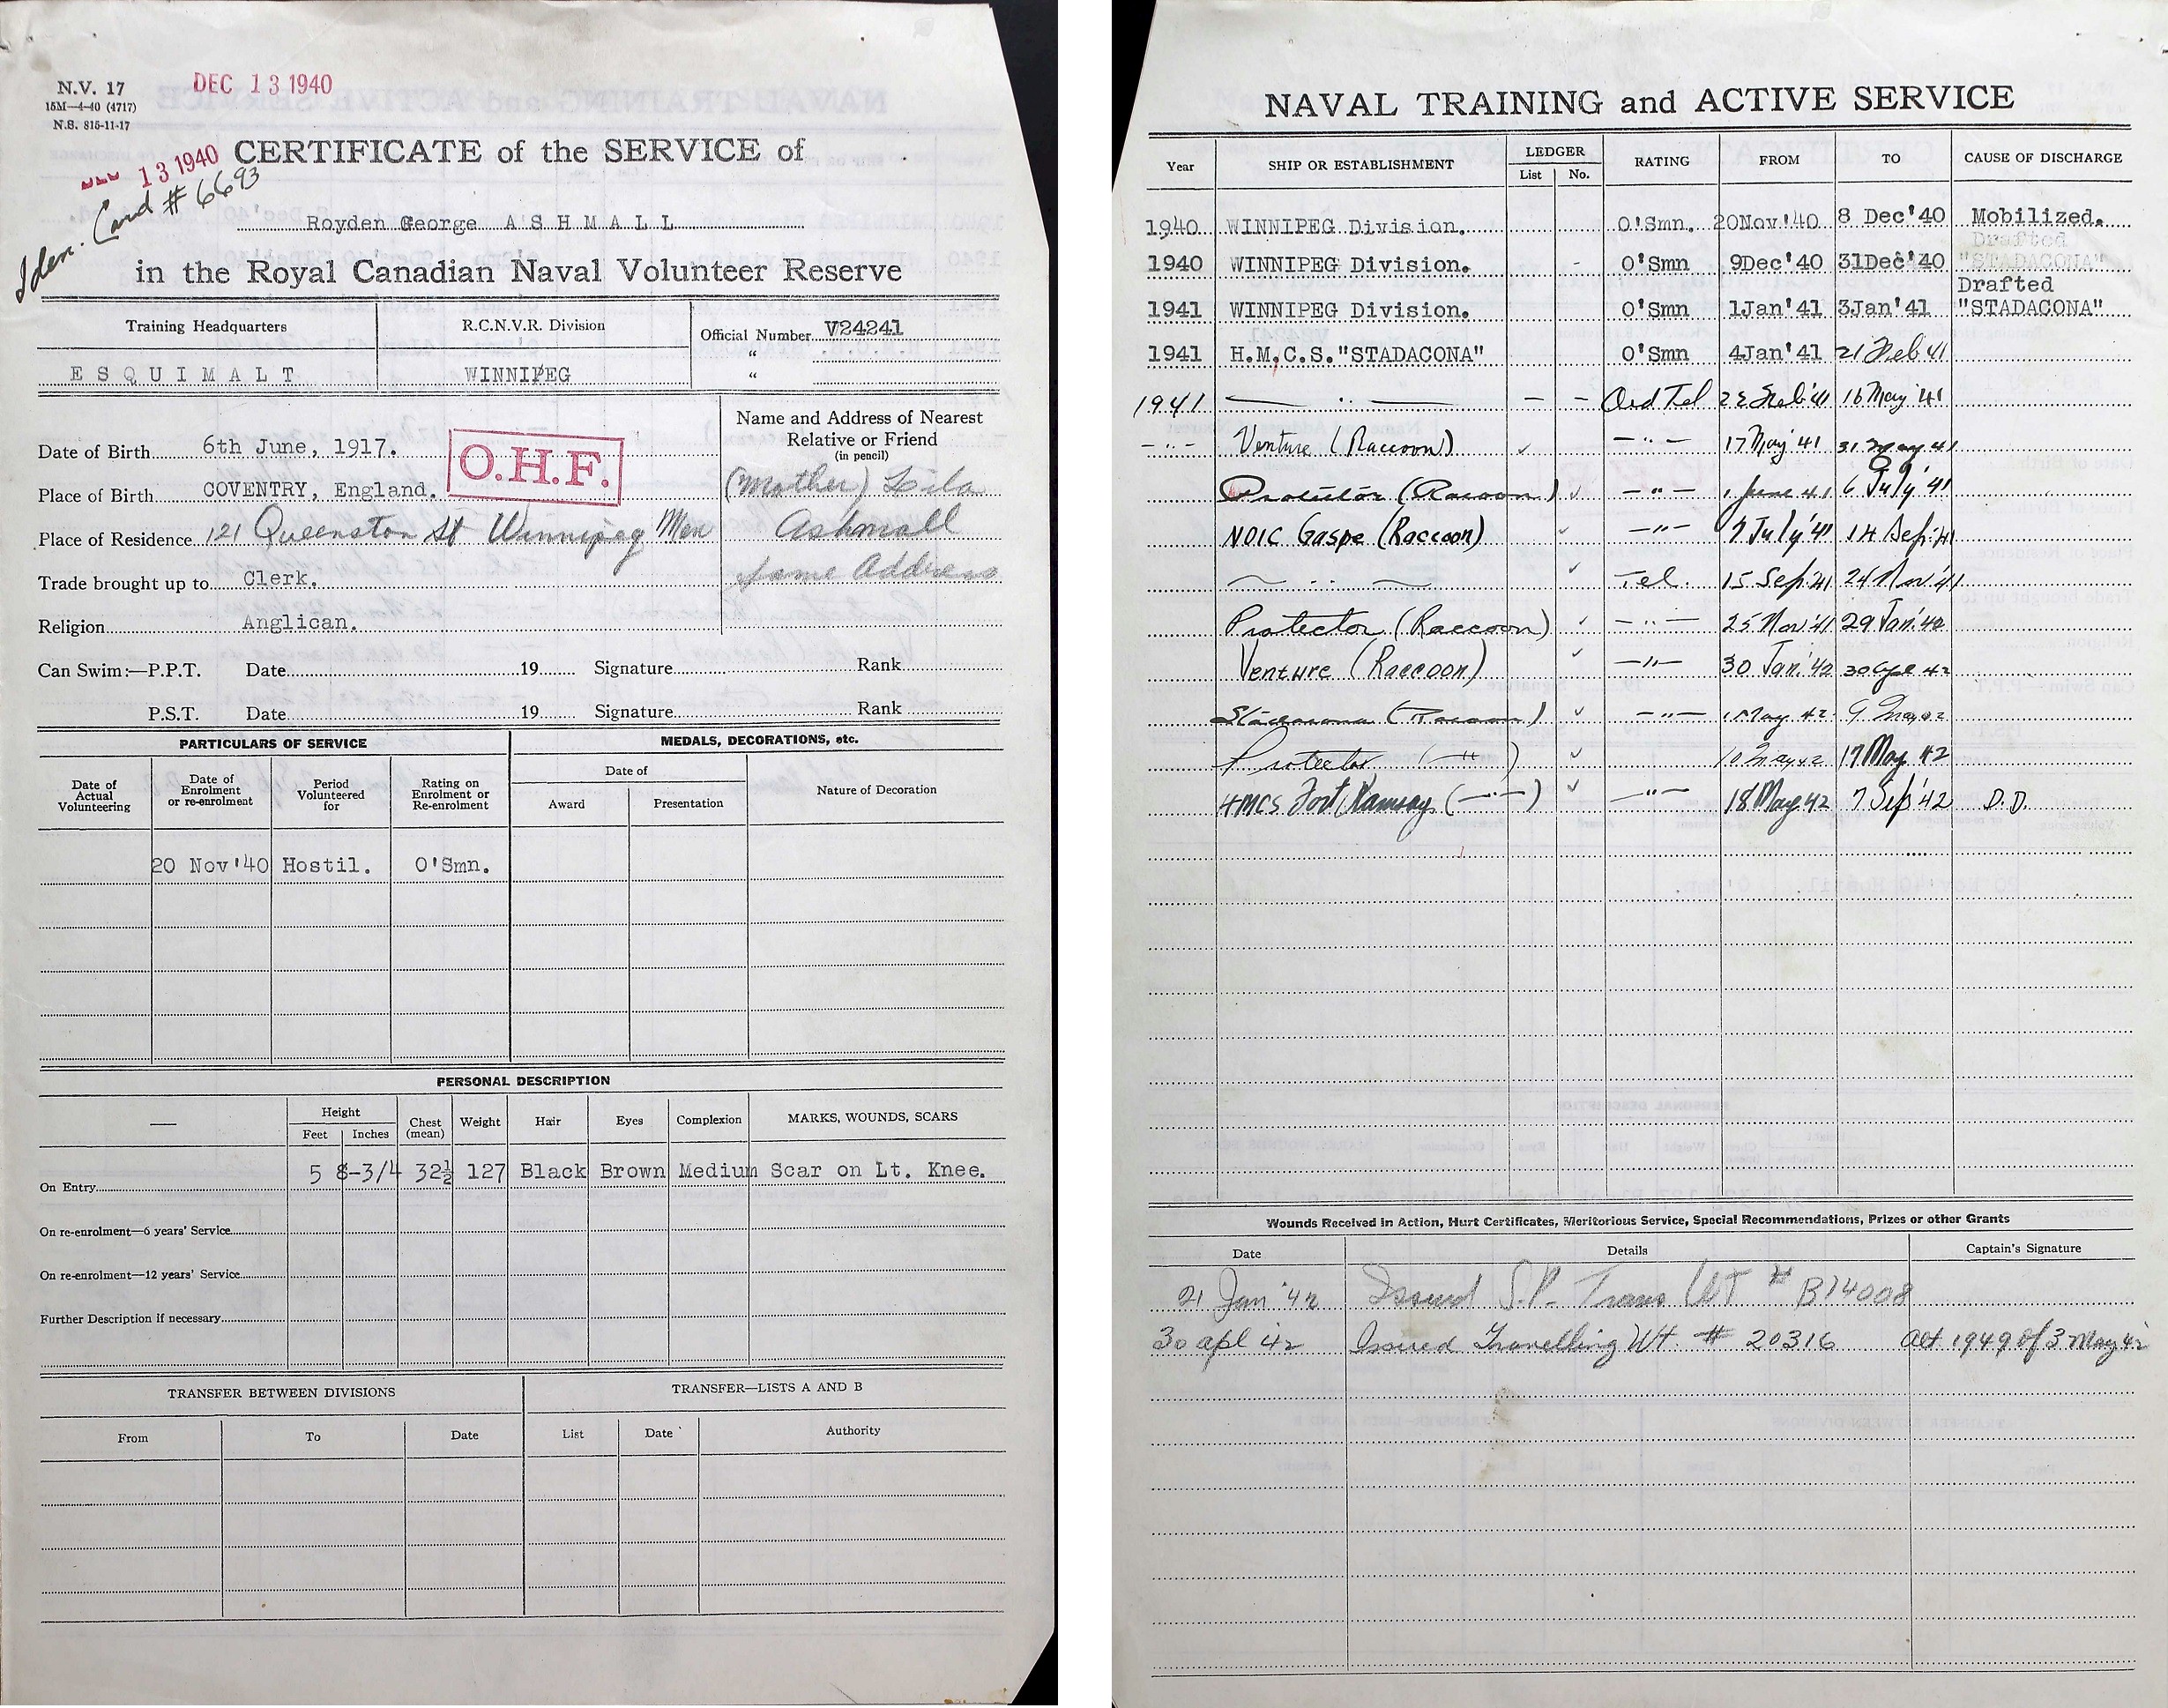 N.V. 17
15M—4-40 (4717)
N.S. 815-11-17
DEC 13 1940
13 1940
Iden. Card # 6693
CERTIFICATE of the SERVICE of
Royden George A S H M A L L
in the Royal Canadian Naval Volunteer Reserve
Training Headquarters R.C.N.V.R. Division Official Number V24241
"
E S Q U I M A L T WINNIPEG "
Name and Address of Nearest
Relative or Friend
(in pencil)
Date of Birth 6th June, 1917.
O.H.F.
Place of Birth COVENTRY, England. (Mother) Lila
Place of Residence 121 Queenston St Winnipeg Man Ashmall
Trade brought up to Clerk. Same Address
Religion Anglican.
Can Swim:—P.P.T. Date 19 Signature Rank
P.S.T. Date 19 Signature Rank
PARTICULARS OF SERVICE MEDALS, DECORATIONS, etc.
Date of Actual Volunteering Date of Enrolment or re-enrolment Period Volunteered for Rating on Enrolment or Re-enrolment Date of Award Presentation Nature of Decoration
20 Nov'40 Hostil. O'Smn.
PERSONAL DESCRIPTION
— Height Feet Inches Chest (mean) Weight Hair Eyes Complexion MARKS, WOUNDS, SCARS
On Entry 5 8-3/4 32½ 127 Black Brown Medium Scar on Lt. Knee.
On re-enrolment—6 years' Service
On re-enrolment—12 years' Service
Further Description if necessary
TRANSFER BETWEEN DIVISIONS TRANSFER—LISTS A AND B
From To Date List Date Authority
NAVAL TRAINING and ACTIVE SERVICE
Year SHIP OR ESTABLISHMENT LEDGER List No. RATING FROM TO CAUSE OF DISCHARGE
1940 WINNIPEG Division. O'Smn. 20Nov'40 8 Dec'40 Mobilized.
Drafted
1940 WINNIPEG Division. - O'Smn 9Dec'40 31Dec'40 "STADACONA"
Drafted
1941 WINNIPEG Division. O'Smn 1Jan'41 3Jan'41 "STADACONA"
1941 H.M.C.S."STADACONA" O'Smn 4Jan'41 21 Feb 41
1941 — " — — — Ord Tel 22 Feb'41 16 May '41
-"- Venture (Raccoon) ✓ -"- 17 May '41 31 May 41
Protector (Racoon) ✓ -"- 1 June 41 6 July '41
NOIC Gaspe (Raccoon) ✓ -"- 7 July '41 14 Sep. 41
— " — ✓ Tel. 15 Sep. '41 24 Nov '41
Protector (Raccoon) ✓ -"- 25 Nov '41 29 Jan. '42
Venture (Raccoon) ✓ -"- 30 Jan. '42 30 Apl 42
Stadacona (Racoon) ✓ -"- 1 May 42 9 May 42
Protector ( -"- ) ✓ 10 May 42 17 May 42
HMCS Fort Ramsay ( -"- ) ✓ -"- 18 May 42 7 Sep '42 D.D.
Wounds Received in Action, Hurt Certificates, Meritorious Service, Special Recommendations, Prizes or other Grants
Date Details Captain's Signature
21 Jan '42 Issued S.P. Trans Wt # B14008
30 apl 42 Issued Travelling Wt. # 20316 Alt 1949 of 3 May 42